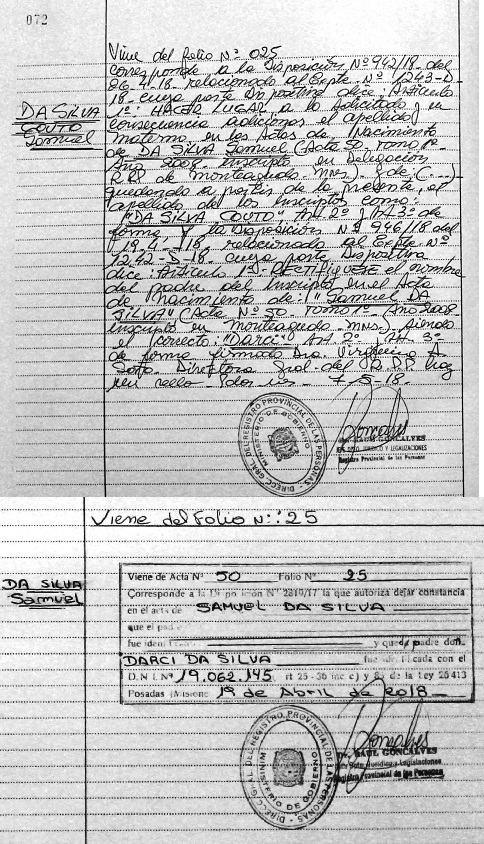 072
Viene del folio Nº 025
corresponde a la Disposición Nº 942/18 del
06.4.18 relacionado al Expte. Nº 1243-D
18- cuya parte Dispositiva dice: Artículo
1º: HACER LUGAR a lo solicitado y en
consecuencia adicionar el apellido
materno en las Actas de: Nacimiento
de DA SILVA Samuel (Acta 50. Tomo 1º
Año 2008. Inscripto en Delegación
RPP de Monteagudo- Mns.) y de (....)
quedando a partir de la presente, el
apellido de los inscriptos como:
"DA SILVA COUTO" Art. 2º y Art 3º de
forma y la Disposición Nº 946/18 del
19.4.18 relacionado al Expte. Nº
1242-D-18. cuya parte Dispositiva
dice: Artículo 1º- RECTIFIQUESE el nombre
del padre del inscripto en el Acta
de Nacimiento de: "Samuel DA
SILVA" (Acta Nº 50. Tomo 1º Año 2008
inscripto en Monteagudo- Mns). siendo
el correcto: "Darci" Art 2º Art. 3º
de forma firmado Dra. Virginia A.
Directora Gral. del R.P.P. Hay
un sello. Pdas, 7-5-18.
DA SILVA
COUTO
Samuel
DIRECC. GRAL. DEL REGISTRO PROVINCIAL DE LAS PERSONAS
MINISTERIO DE GOBIERNO
Dr. RAUL GONCALVES
JURIDICO Y LEGALIZACIONES
Registro Provincial de las Personas
Viene del Folio Nº: 25
DA SILVA
Samuel
Viene de Acta Nº 50 Folio Nº 25
Corresponde a la Disposición Nº 2819/17 la que autoriza dejar constancia
en el acta de SAMUEL DA SILVA
que el padre
fue identi y que el padre don.
DARCI DA SILVA fue identificada con el
D.N.I. Nº 19.062.145 rt 25 - 36 inc c) y 85 de la Ley 26413
Posadas (Misiones 19 de Abril de 2018
DIRECC. GRAL. DEL REGISTRO PROVINCIAL DE LAS PERSONAS
MINISTERIO DE GOBIERNO
Dr. RAUL GONCALVES
Dpto. Jurídico y Legalizaciones
Registro Provincial de las Personas